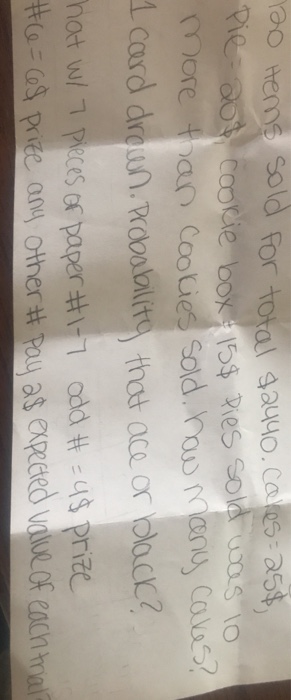 120 items sold for total $2440. Cakes = 25$,
Pie = 20$, cookie box = 15$ Pies sold was 10
more than cookies sold. how many cakes?
1 card drawn. Probability that ace or black?
hat w/ 7 pieces or paper #1-7 odd # = 4$ prize
#6 = 6$ prize any other # pay 2$ expected value of each trial?